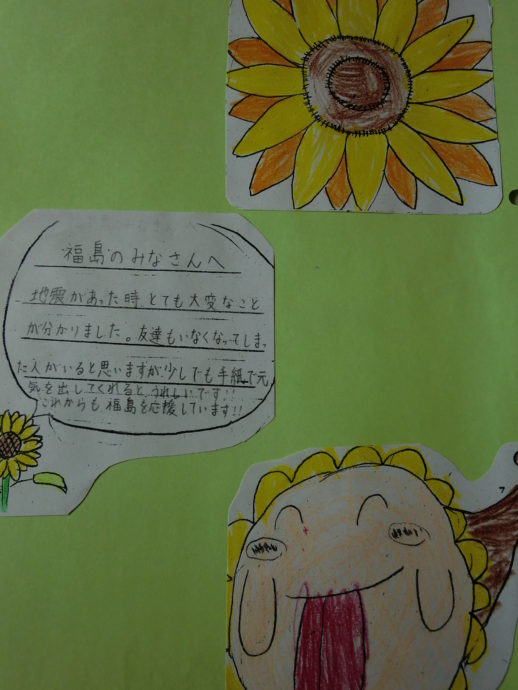 福島のみなさんへ
地震があった時、とても大変なこと
が分かりました。友達もいなくなってしまっ
た人がいると思いますが少しでも手紙で元
気を出してくれると、うれしいです!!
これからも福島を応援しています!!